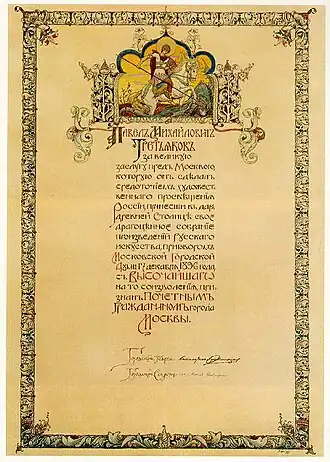 Павелъ Михайловичъ
Третьяковъ
за великую
заслугу предъ Москвою,
которую онъ сдѣлалъ
средоточіемъ художест
веннаго просвѣщенія
Россіи, принеся въ даръ
древней Столицѣ свое
драгоцѣнное собраніе
произведеній русскаго
искусства, приговоромъ
Московской Городской
Думы 17 декабря 1896 года,
съ Высочайшаго
на то соизволенія, при
знанъ Почетнымъ
Гражданиномъ города
Москвы.
Городской Голова
Городской Секретарь